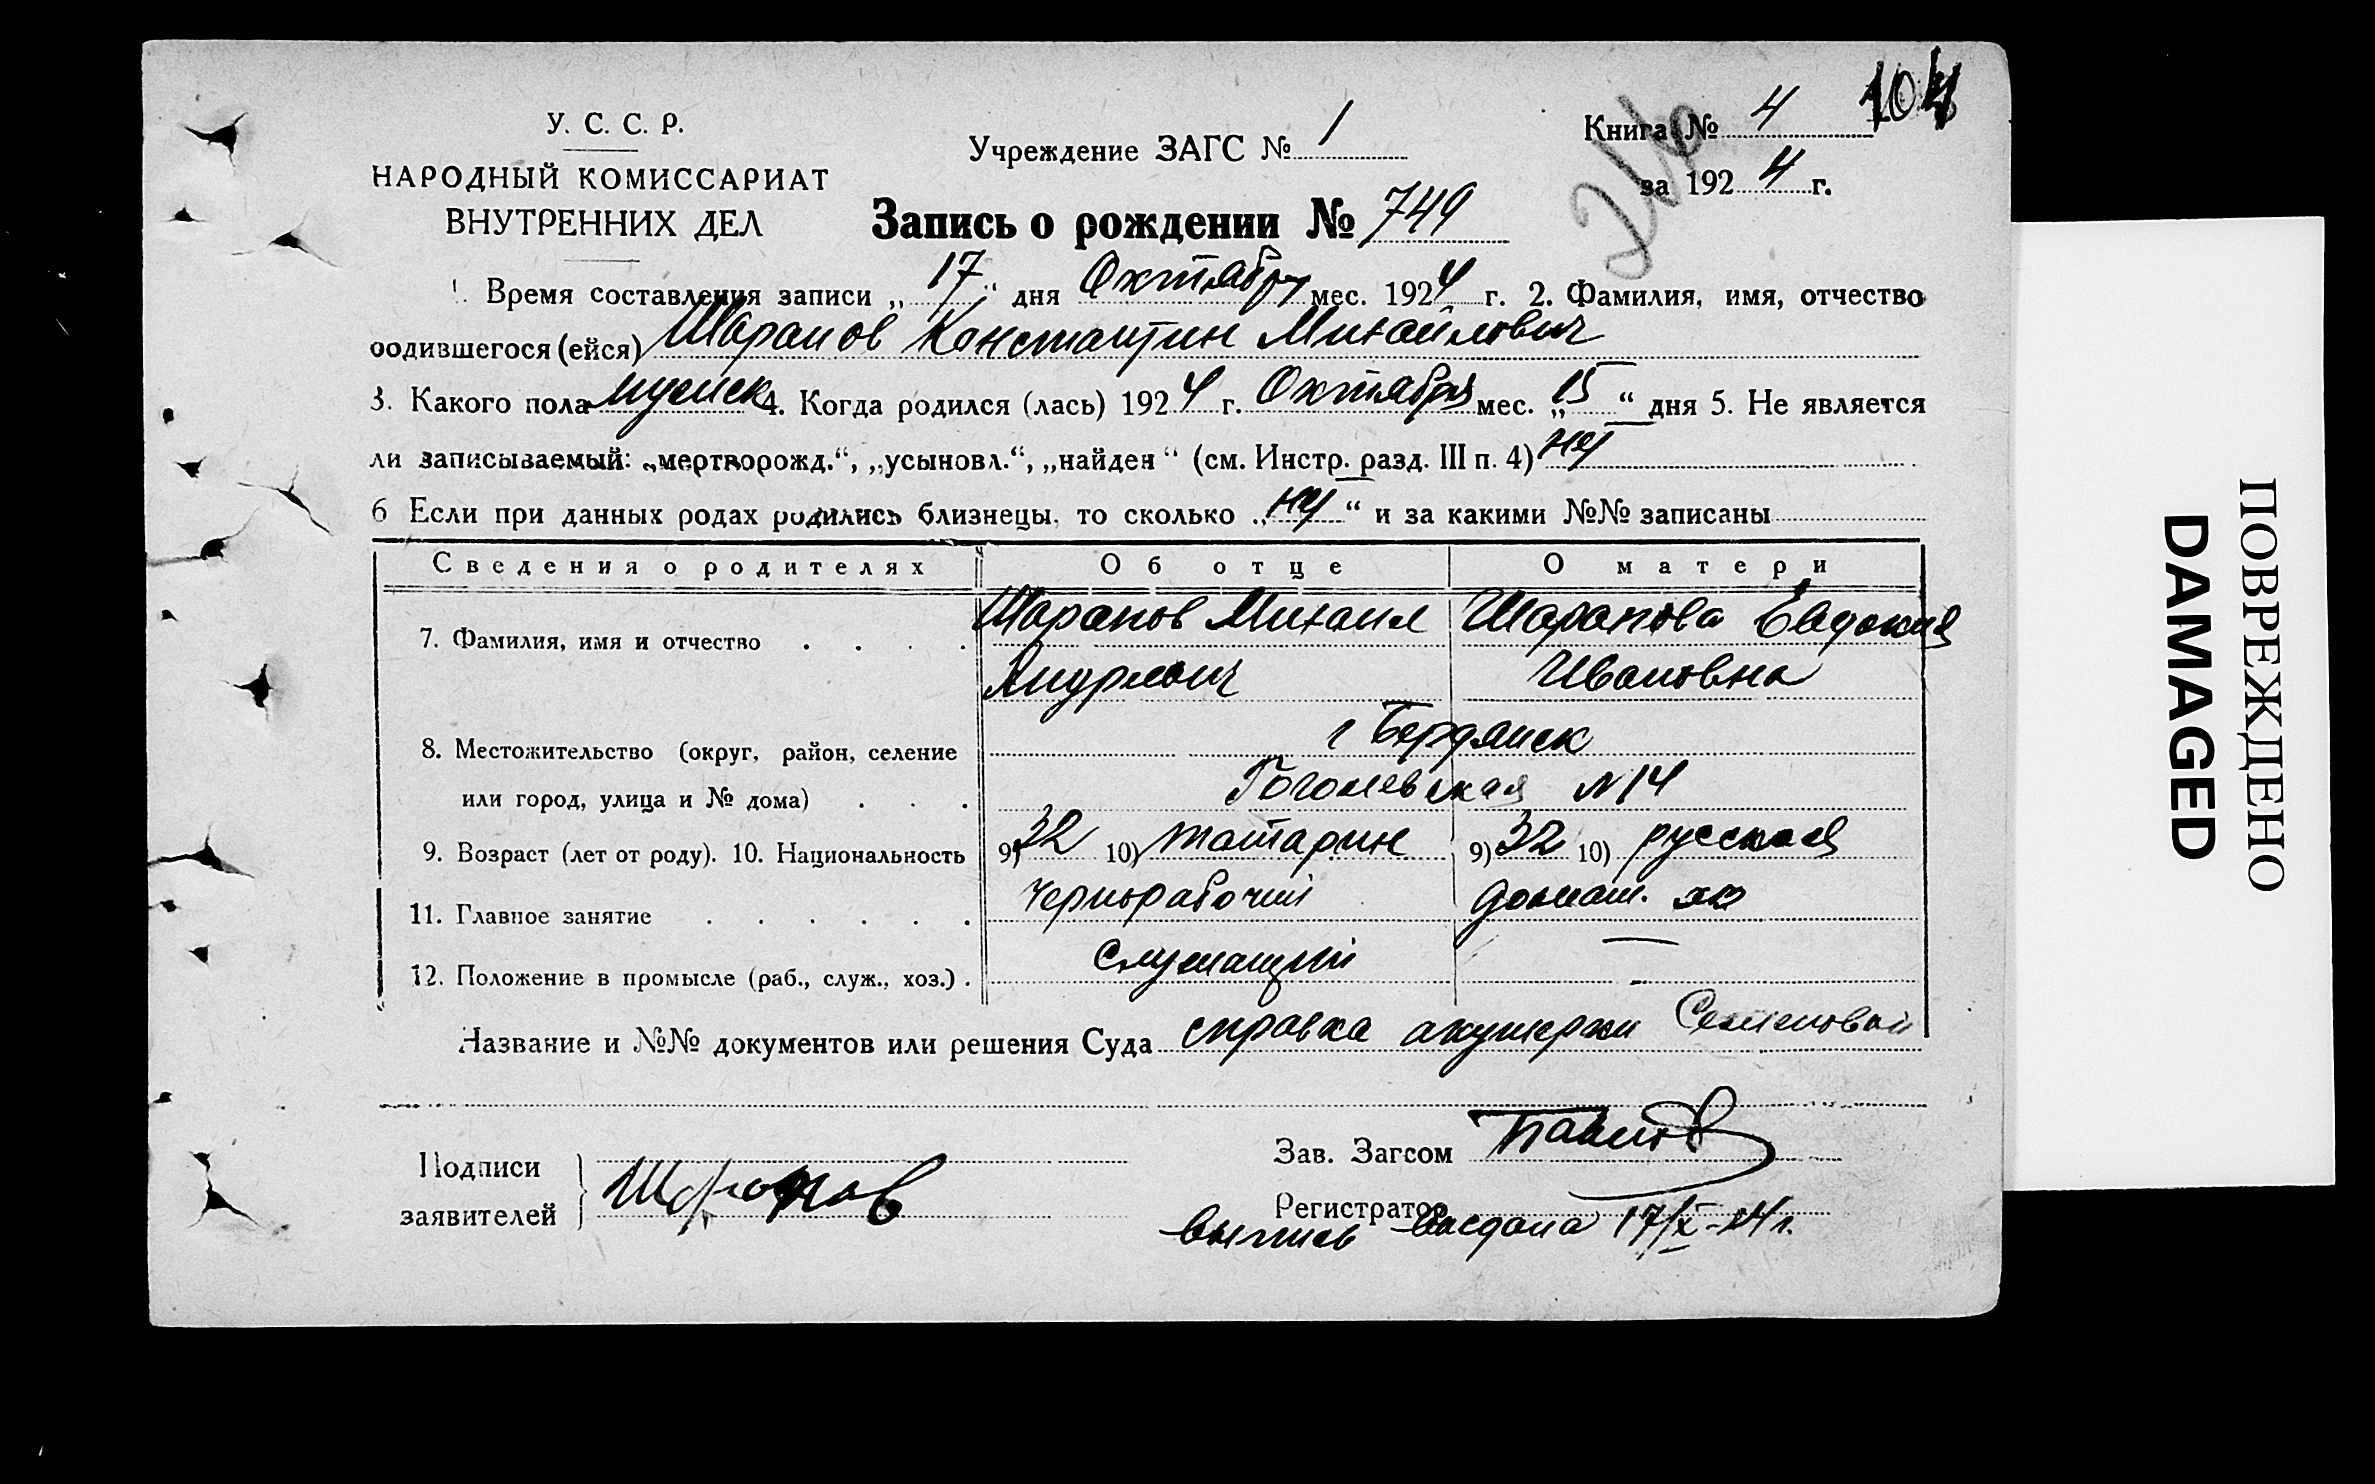 104
У. С. С. Р.
НАРОДНЫЙ КОМИССАРИАТ
ВНУТРЕННИХ ДЕЛ
Учреждение ЗАГС № 1
Книга № 4
за 1924 г.
Запись о рождении № 749
1. Время составления записи „17“ дня Октября мес. 1924 г. 2. Фамилия, имя, отчество
родившегося (ейся) Шарапов Константин Михайлович
3. Какого пола мужск 4. Когда родился (лась) 1924 г. Октября мес. „15“ дня 5. Не является
ли записываемый: „мертворожд.“, „усыновл.“, „найден“ (см. Инстр. разд. III п. 4) нет
6 Если при данных родах родились близнецы, то сколько „нет“ и за какими №№ записаны
Сведения о родителях Об отце О матери
7. Фамилия, имя и отчество Шарапов Михаил Шарапова Евдокия
Андреевич Ивановна
8. Местожительство (округ, район, селение г Бердянск
или город, улица и № дома) Гоголевская № 14
9. Возраст (лет от роду). 10. Национальность 9) 32 10) татарин 9) 32 10) русская
11. Главное занятие Чернорабочий домаш. хоз
12. Положение в промысле (раб., служ., хоз.) Служащий —
Название и №№ документов или решения Суда справка акушерки Семеновой
Подписи
заявителей
Шарапов
Зав. Загсом Павлов
Регистратор
выпись выдана 17/X-24 г.
ПОВРЕЖДЕНО
DAMAGED